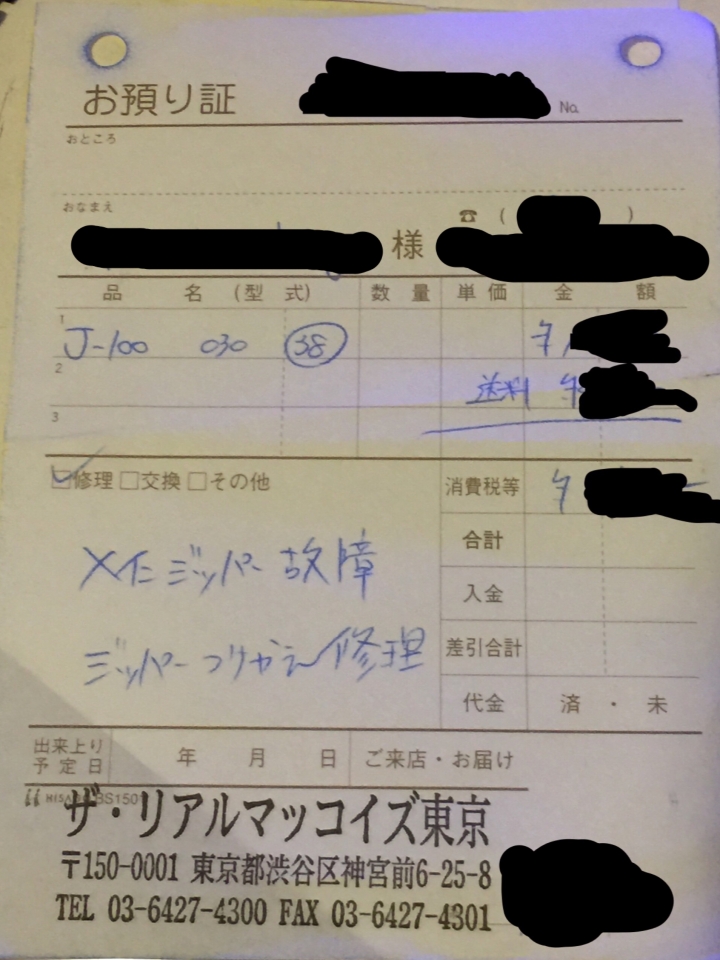 お預り証
No.
おところ
おなまえ
様
☎ ( )
品 名 (型 式) 数 量 単 価 金 額
1 J-100 030 38
2 送料
3
☑修理 □交換 □その他
消費税等
合計
メインジッパー故障
入金
ジッパーつけかえ修理
差引合計
代金 済・未
出来上り予定日 年 月 日 ご来店・お届け
BS150
ザ・リアルマッコイズ東京
〒150-0001 東京都渋谷区神宮前6-25-8
TEL 03-6427-4300 FAX 03-6427-4301